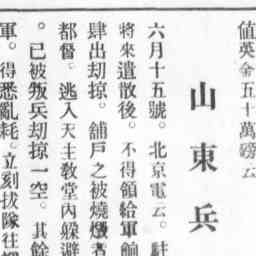 值英金五十萬磅云
山東兵
六月十五號。北京電云。駐
將來遣散後。不得領給軍餉
肆出劫掠。舖戶之被燒燬者
都督。逃入天主敎堂內躲避
。已被叛兵劫掠一空。其餘
軍。得悉亂耗。立刻拔隊往